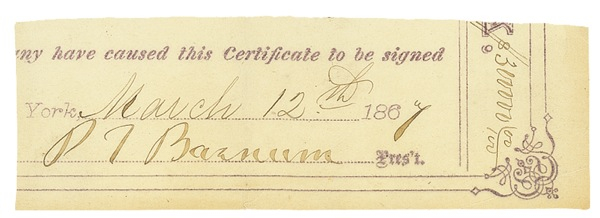 ny have caused this Certificate to be signed
York, March 12th 1867
P T Barnum Pres't.